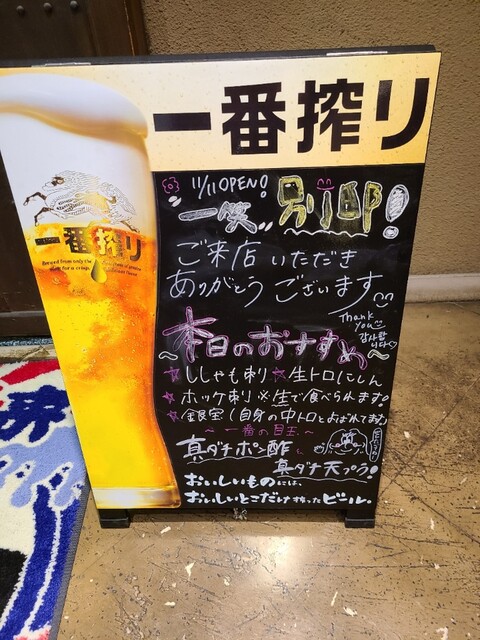 一番搾り
11/11 OPEN!
一笑 別邸!
ご来店 いただき
ありがとう ございます
Thank
You
감사합
니다♡
本日のおすすめ
☆ししゃも刺り ☆生トロにしん
☆ホッケ刺り ※生で食べられます!
☆銀宝(白身の中トロとよばれてます)
~一番の目玉~
真ダチポン酢
真ダチ天プラ!
おいしいものには、
おいしいとこだけ搾ったビール。
一番搾り